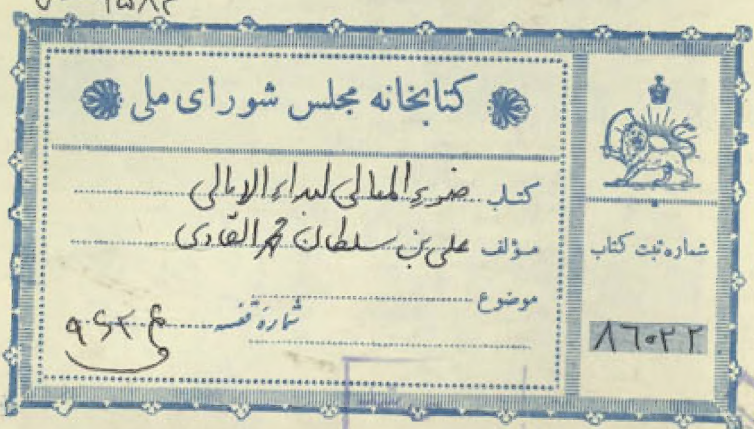 کتابخانه مجلس شورای ملی
کتاب ضوء المعالی لبداء الامالی
مؤلف علی بن سلطان محمد القاری
موضوع
شماره قفسه ۹۶۲۴
شماره ثبت کتاب
۸۶۰۲۲